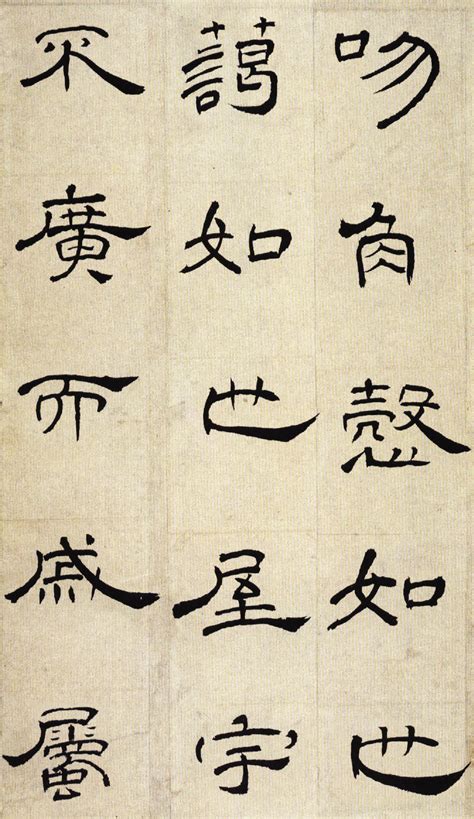 吻角慤如也
藹如也屋宇
不廣而戚屬